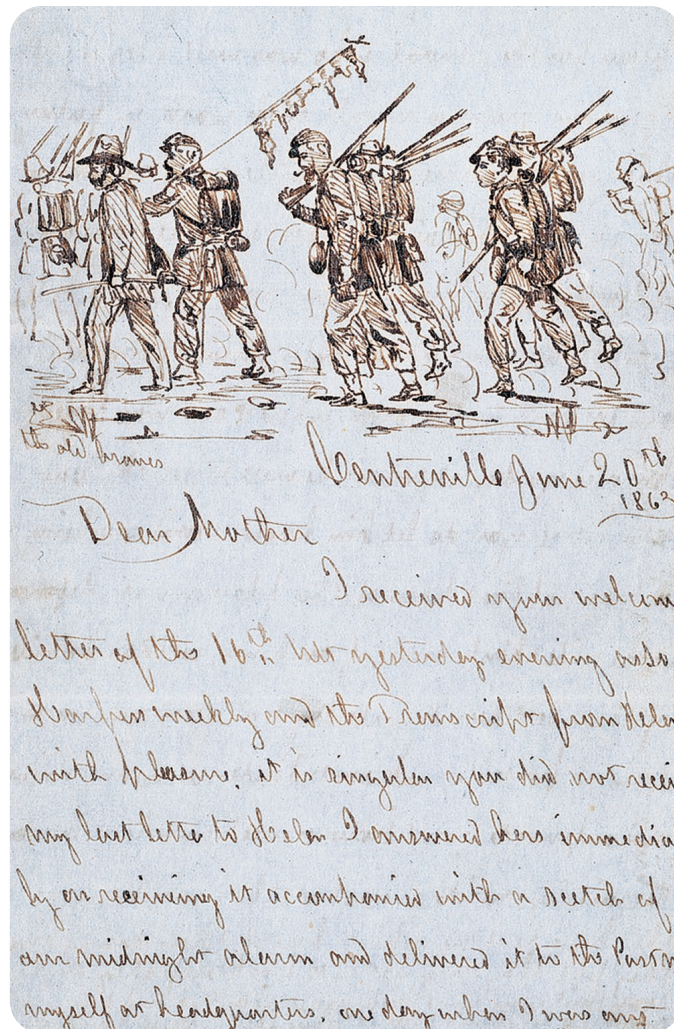 the old braves
Centreville June 20th
1863
Dear Mother
I received your welcom
letter of the 16th yesterday evening also
Harper weekly and the Transcript from Helen
with pleasure. it is singular you did not recei
my last letter to Helen I answered hers immedia
ly on receiving it accompanied with a scetch of
our midnight alarm and delivered it to the Postm
myself at headquarters. one day when I was out